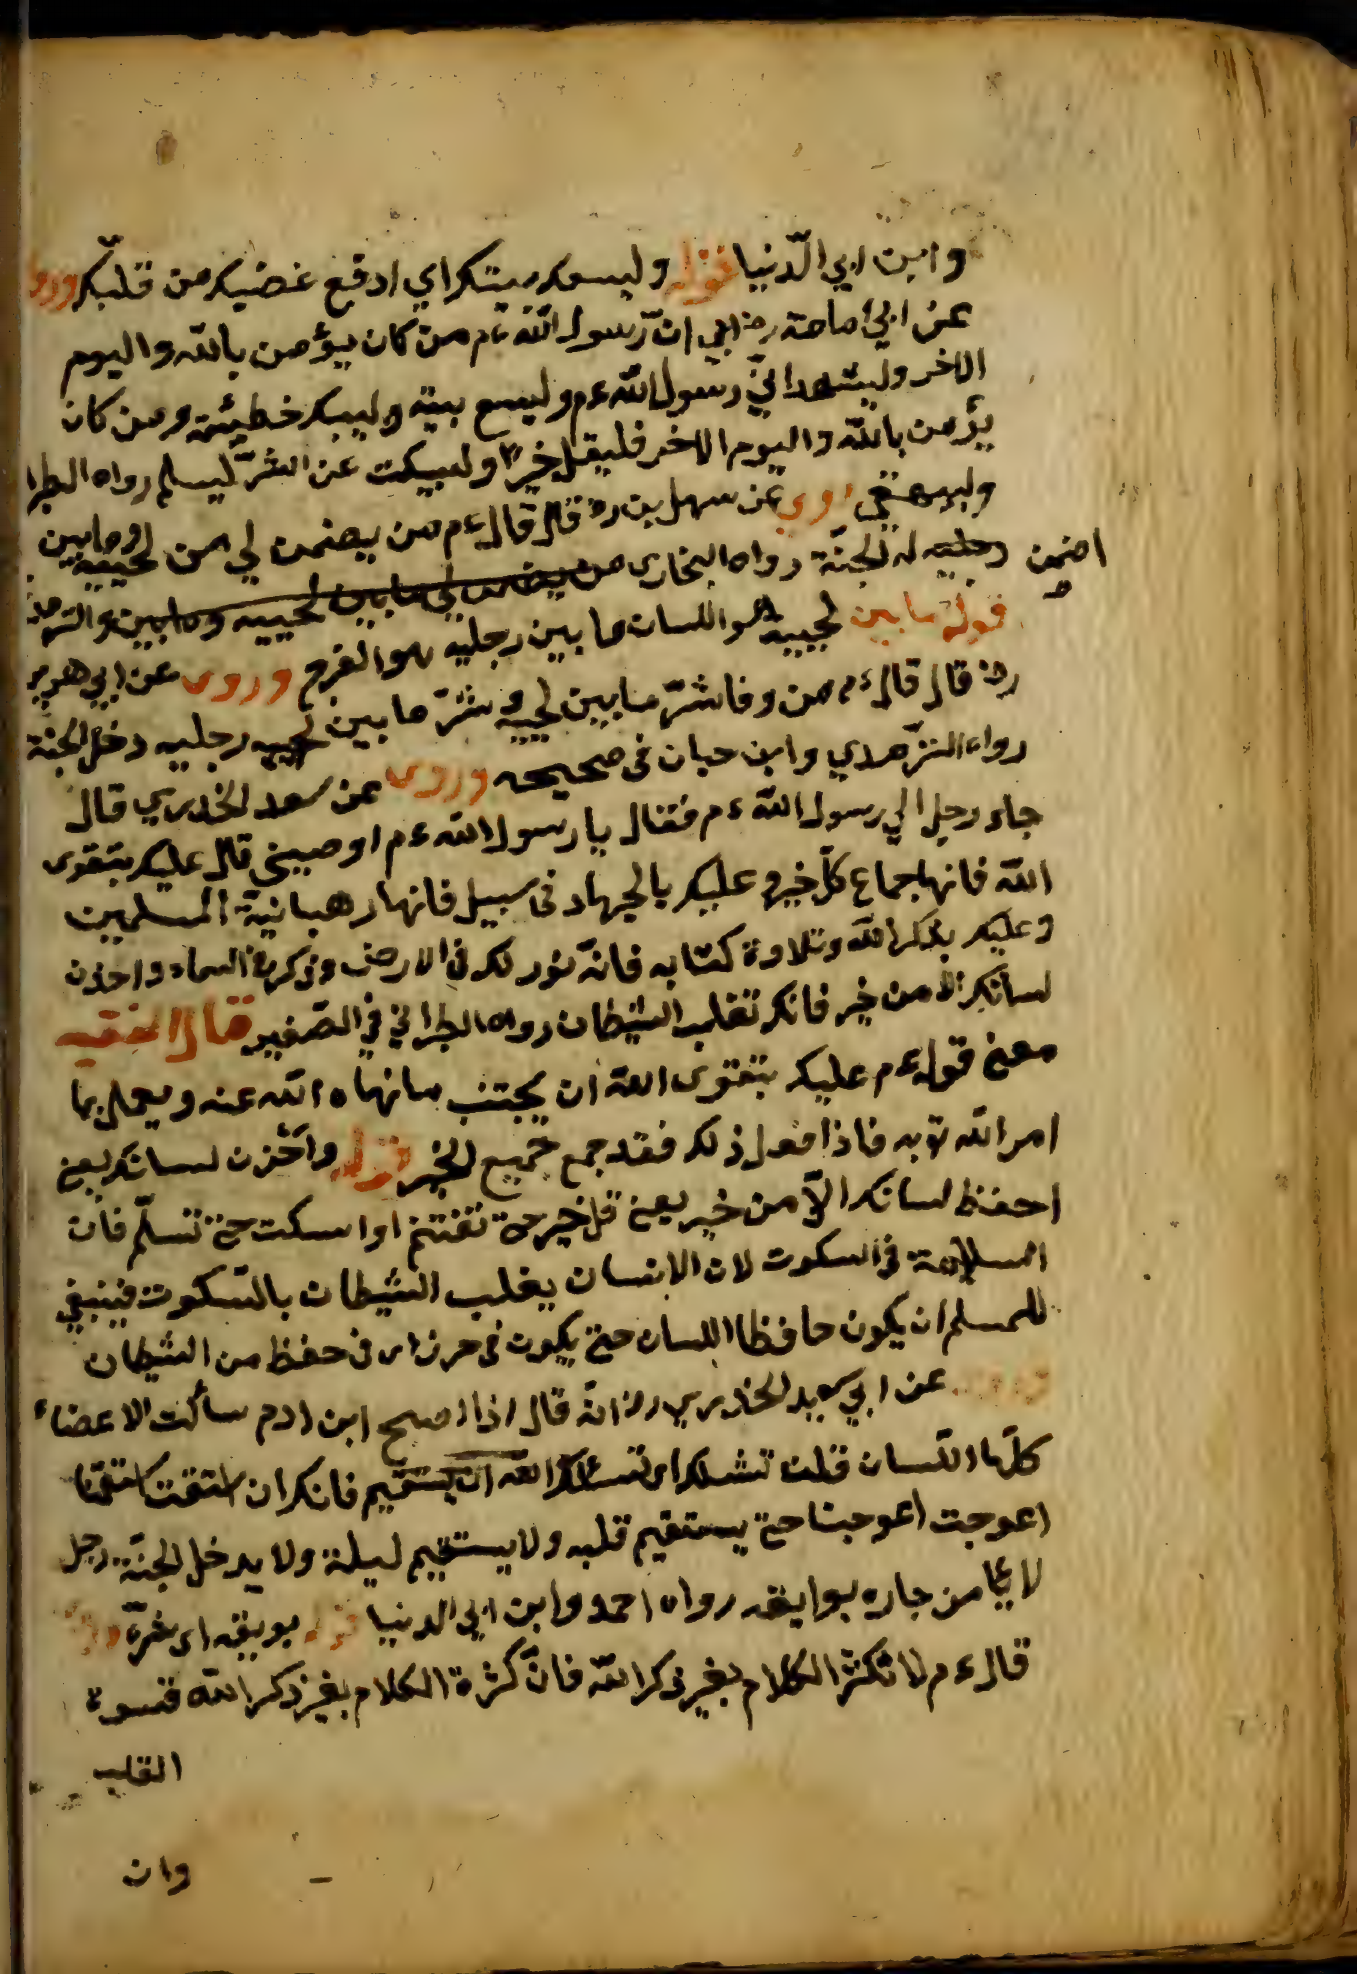 وابن ابي الدّنيا قوله وليسعك بيتك اي ادفع غضبك من قلبك وروى
عن ابي امامة رضي ان رسول اللّه ءم من كان يؤمن باللّه واليوم
الاخر وليشهد اني رسول اللّه ءم وليسع بيته وليبك خطيئته ومن كان
يؤمن باللّه واليوم الاخر فليقل خيرًا وليسكت عن الشرّ ليسلم رواه الطبرا
ولبيهقي روى عن سهل بن رض قال قال ءم من يضمن لي من لحييه وما بين
رجليه له الجنّة رواه البخاري من يضمن لي ما بين لحييه وما بين والترمذ
اضمن
قوله ما بين لحييه هو اللسان ما بين رجليه هو الفرج وروى عن ابي هرير
رض قال قال ءم من وقا شرّ ما بين لحييه وشرّ ما بين لحييه رجليه دخل الجنة
رواه الترمدي وابن حبان في صحيحه وروى عن سعد الخدري قال
جاء رجل الي رسول اللّه ءم فقال يا رسول اللّه ءم اوصيني قال عليك بتقوى
اللّه فانها جماع كلّ خير وعليك بالجهاد في سبيل فانها رهبانية المسلمين
وعليك بذكر اللّه وتلاوة كتابه فانّه نور لك في الارض وذكر في السماء واحذن
لسانك الا من خير فانك تغلب الشيطان رواه الطبراني في الصّغير قال الفقيه
معنى قوله ءم عليك بتقوى اللّه ان يجتنب ما نهاه اللّه عنه ويعمل بما
امر اللّه توبه فاذا فعل ذلك فقد جمع جميع الخير قوله وآخزن لسانك يعني
احفظ لسانك الّا من خير يعني قل خير حتى تغتنم او اسكت حتى تسلّم فان
السلامة في السكوت لان الانسان يغلب الشيطان بالسّكوت فينبغي
للمسلم ان يكون حافظا اللسان حتى يكون في حرز اى في حفظ من الشيطان
عن ابي سعيد الخدري رض انّه قال اذا اصبح ابن ادم سألت الاعضاء
كلّها اللّسان قلن نشدك اى نسئلك اللّه ان يستقيم فانك ان استقمت استقمنا
اعوجت اعوجبنا حتى يستقيم قلبه ولا يستقيم ليلة ولا يدخل الجنّة رجل
لا يأمن جاره بوايقه رواه احمد وابن ابي الدنيا قوله بويقه اى شرّه
قال ءم لا تكثر الكلام بغير ذكر اللّه فانّ كثرة الكلام بغير ذكر اللّه قسوة
القلب
وان